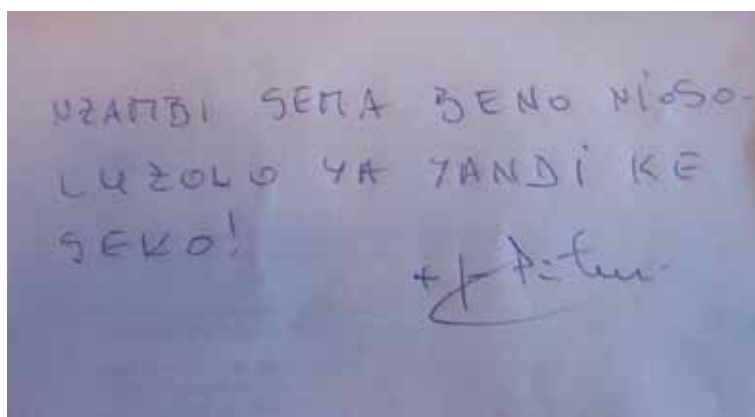 NZAMBI SEMA BENO NIOSO-
LUZOLO YA YANDI KE
SEKO!